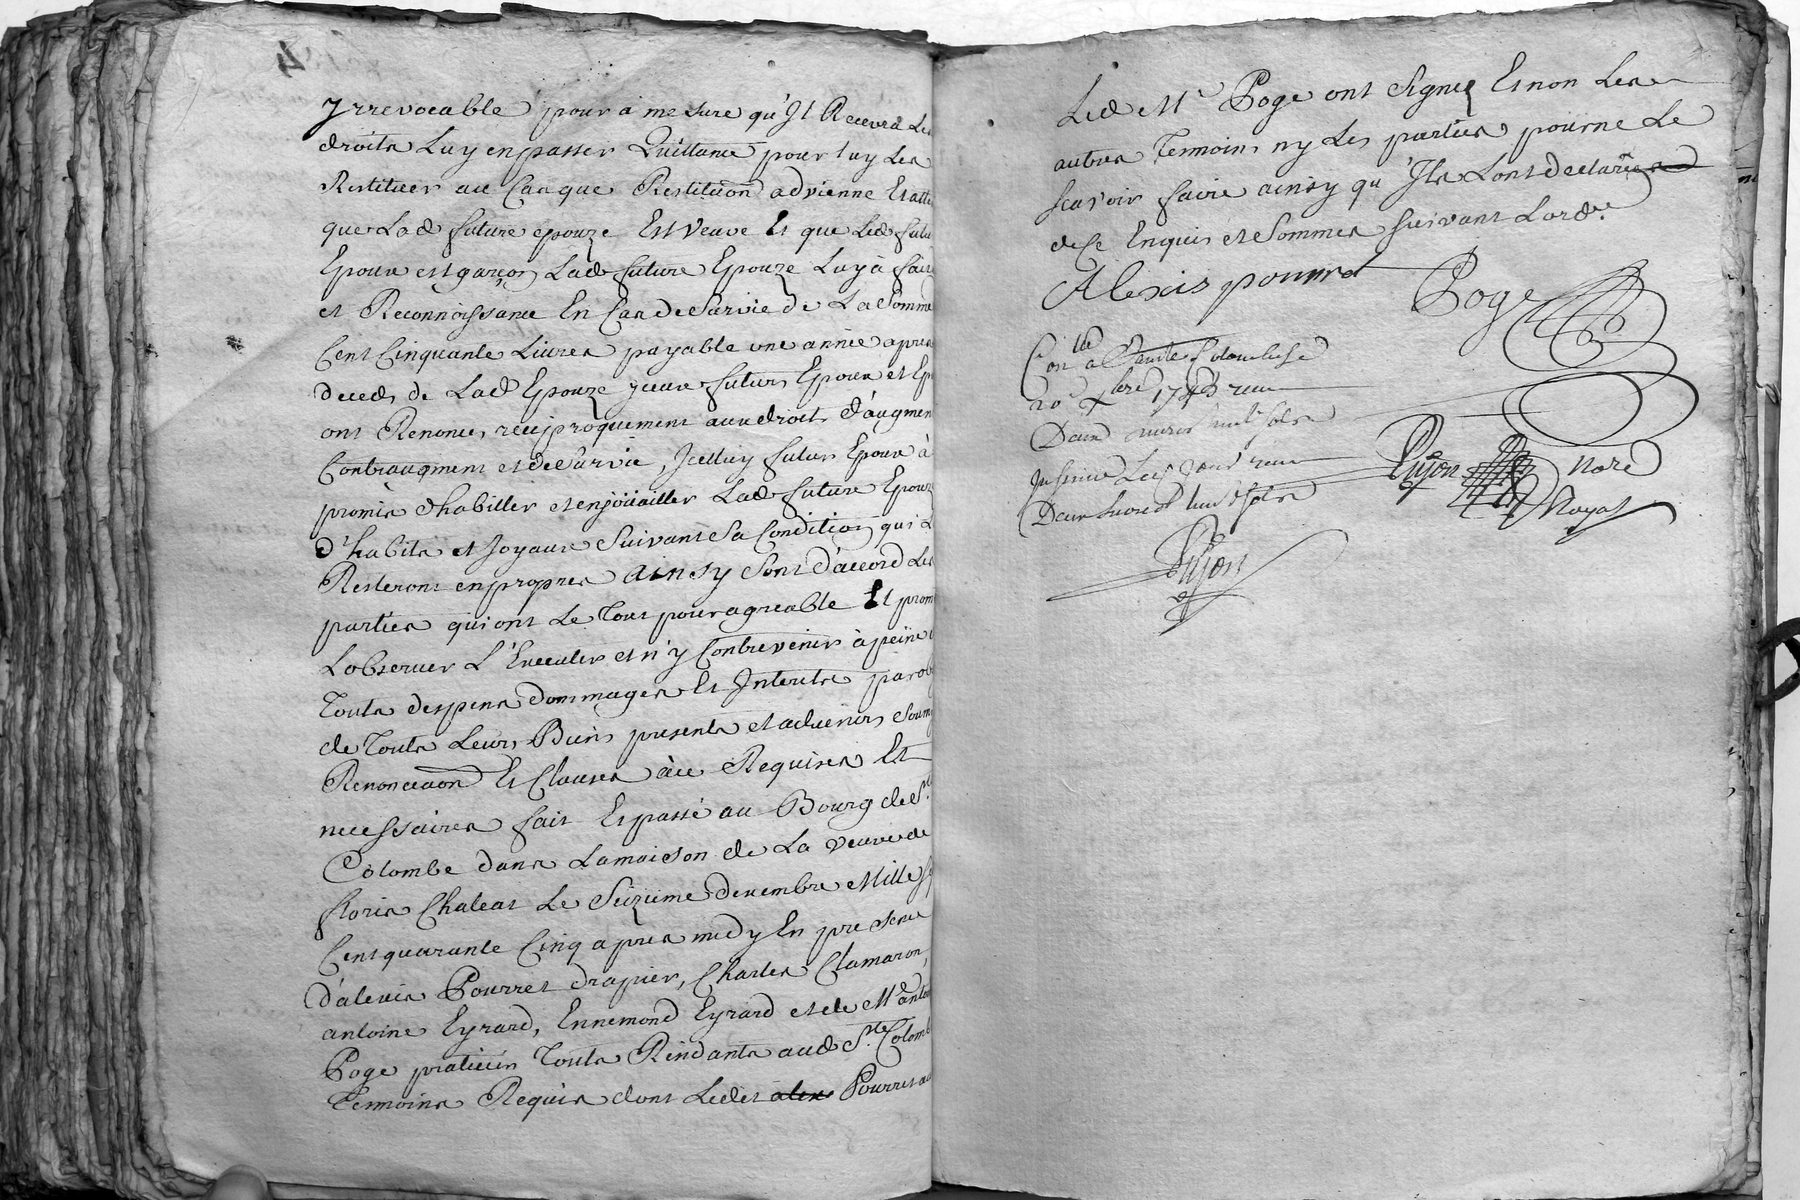 yrrevocable pour à mesure qu'Il Recevra Les
droits Luy en passer Quittance pour luy Les
Restituer au Cas que Restitution advienne Et att
que Lad future epouze Est Veuve Et que Led futu
Epoux est garçon Lad future Epouze Luy à fait
et Reconnoissance En Cas de Survie de La Somme
Cent Cinquante Livres payable une année apres
deceds de Lad Epouze yceux futurs Epoux et Ep
ont Renoncés reciproquement aux droits d'augmen
Contraugment et de Survie, Icelluy futur Epoux à
promis d'habiller et enjoüailler Lad future Epouz
d'habits et Joyaux Suivant Sa Condition qui L
Resteront en propres ainsy Sont d'accord Les
parties qui ont Le Tout pour agreable Et prom
L'observer L'Executer et n'y Contrevenir à peine
Touts despens dommages Et Interets par ob
de Touts Leurs Biens presents et advenirs Soum
Renonceaon Et Clauses à ce Requises Et
necessaires fait Et passé au Bourg de Ste
Colombe dans La maison de La veuve de
floris Chaleat Le Seizieme decembre Mille Se
Cent quarante Cinq apres midy En presence
d'alexis Pourret drapier, Charles Clamaron,
antoine Eyrard, Ennemond Eyrard et de Me anto
Poge praticien Touts Residants aud Ste Colomb
Temoins Requis dont Ledit alex Pourret
Led Mr Poge ont Signés Et non Les
autres Temoins ny Les parties pour ne Le
scavoir faire ainsy qu'Ils L'ont declarés
de Ce Enquis et Sommés Suivant L'orde.
Alexis pourret Poge
Conllé a Sainte Colombe le
20e xbre 1745 recu
Deux livres huit sols
Insinué Led Jour recu
Deux livres huit sols
Pujon Nore
Royal
Pujon